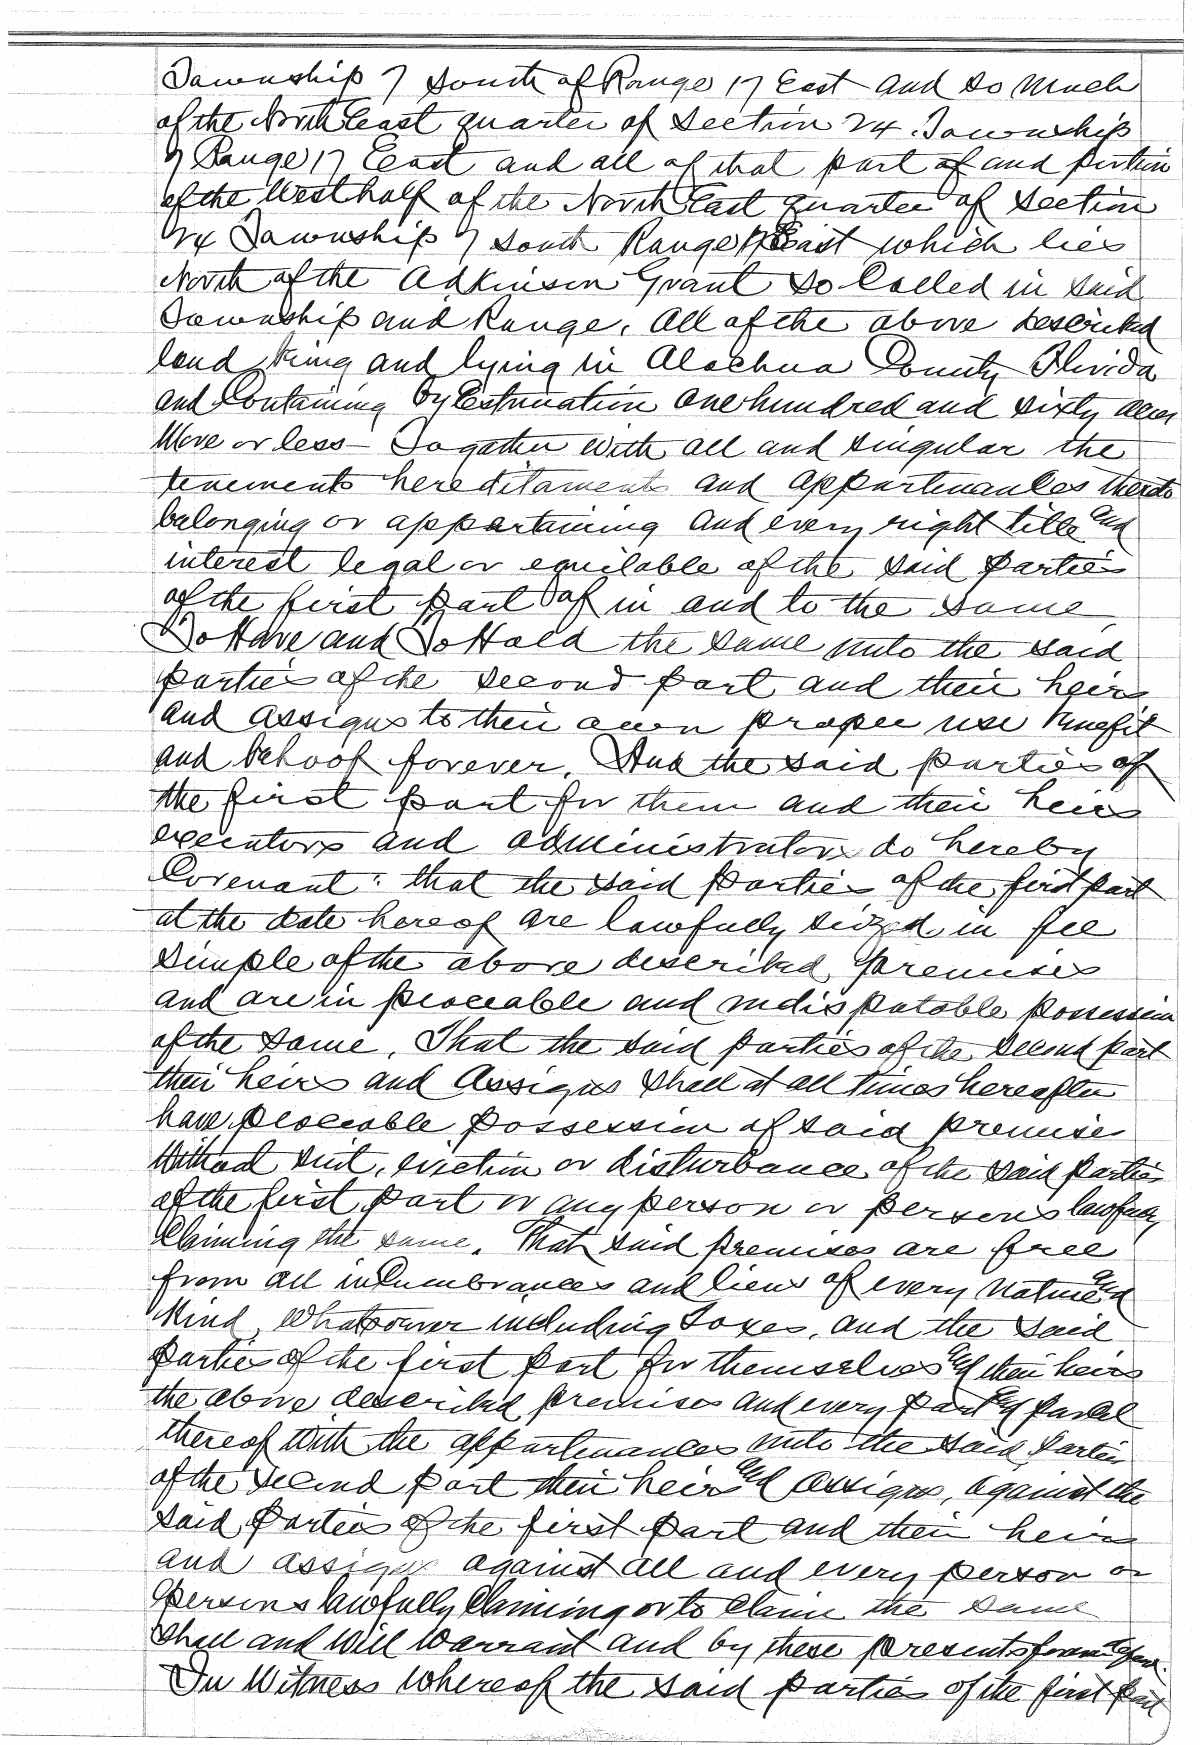 Township 7 South of Range 17 East and so much
of the North East quarter of Section 24. Township
7 Range 17 East and all of that part of and portion
of the West half of the North East quarter of Section
24 Township 7 South Range 17 East which lies
North of the Adkinson Grant so Called in said
Township and Range. All of the above described
land being and lying in Alachua County Florida
and Containing by Estimation one hundred and sixty acres
More or less - Together with all and singular the
tenements hereditaments and appurtenances thereto
belonging or appertaining and every right title and
interest legal or equitable of the said parties
of the first part of in and to the same
To Have and To Hold the same unto the said
parties of the second part and their heirs
and assigns to their own proper use benefit
and behoof forever. And the said parties of
the first part for them and their heirs
executors and administrators do hereby
Covenant: that the said parties of the first part
at the date hereof are lawfully seized in fee
simple of the above described premises
and are in peaceable and indisputable possession
of the same. That the said parties of the second part
their heirs and assigns shall at all times hereafter
have peaceable possession of said premises
without suit, eviction or disturbance of the said parties
of the first part or any person or persons lawfully
claiming the same. That said premises are free
from all incumbrances and liens of every nature and
Kind, Whatsoever including Taxes, and the said
parties of the first part for themselves and their heirs
the above described premises and every part and parcel
thereof with the appurtenances unto the said parties
of the second part their heirs and assigns, against the
said parties of the first part and their heirs
and assigns against all and every person or
persons lawfully claiming or to claim the same
shall and will warrant and by these presents forever defend.
In Witness whereof the said parties of the first part